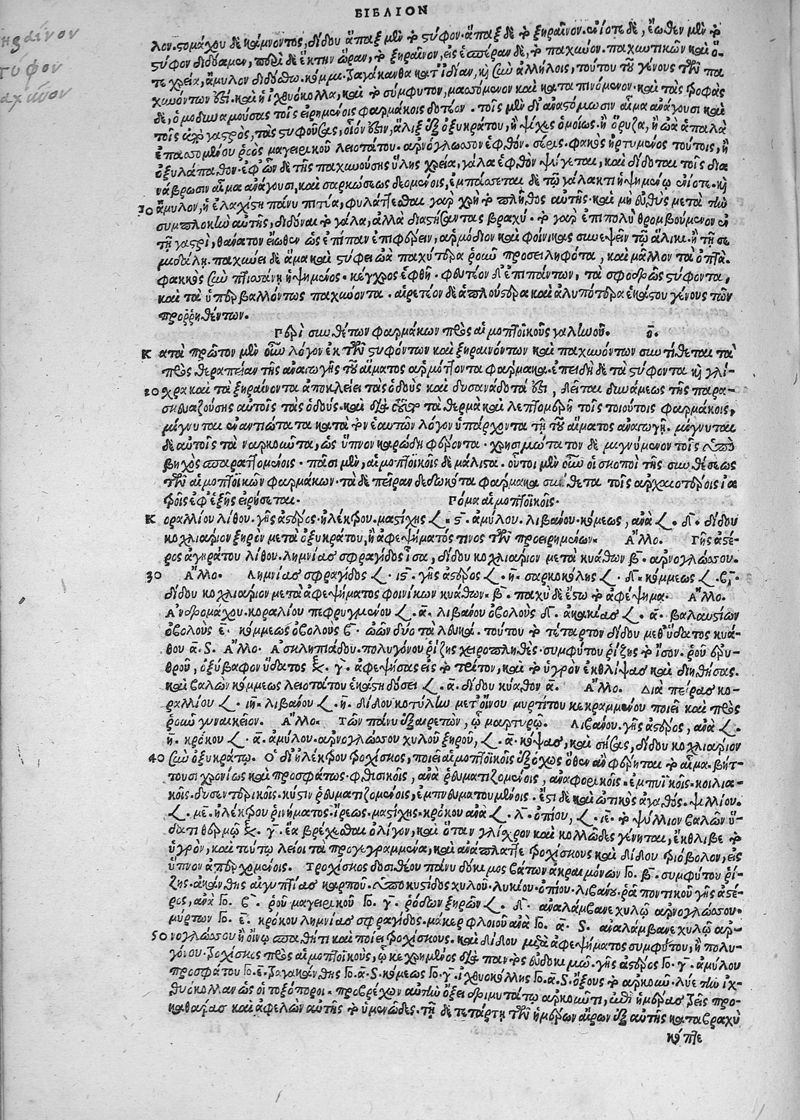 ΒΙΒΛΙΟΝ
λον. στομάχου δὲ κάμνοντος, δίδου ἅπαξ μὲν τὸ στύφον. ἅπαξ δὲ τὸ ξηραῖνον. ἐνίοτε δὲ, ἕωθεν μὲν τὸ
στύφον διδόαμεν, περὶ δὲ ἕκτην ὥραν, τὸ ξηραῖνον, εἰς ἑσπέραν δὲ, τὸ παχῦνον. παχυντικῶν καὶ ὅ-
τε χρεία, ἄμυλον διδόσθω. κόμμι. τραγάκανθα κατ' ἰδίαν, καὶ σὺν ἀλλήλοις, τούτου τοῦ γένους τῶν πα
χυνόντων ἐστὶ. καὶ ἡ ἰχθυόκολλα, καὶ τὸ σύμφυτον, μασσόμενον καὶ καταπινόμενον. καὶ τὰς τροφὰς
τοῖς εἰρημένοις φαρμάκοις δοτέον. τοῖς μὲν δι' ἀναστόμωσιν αἷμα ἀνάγουσι καὶ
τὰς στυφούσας, οἷόν ἐστιν, ἄλιξ ἐξ ὀξυκράτου, ἢ ψίχες ὁμοίως. ἢ ὄρυζα, ἢ ὠὰ ἁπαλὰ
μαγειρικοῦ λειοτάτου. ἀρνόγλωσσον ἑφθὸν. σέρις. φακῆς ἠρτυμένος τούτοις, ἢ
ὀξυλάπαθον. ἐφ' ὧν δὲ τῆς παχυνούσης ὕλης χρεία, γάλα ἑφθὸν ψύγεται, καὶ δίδοται τοῖς δια
νάβρωσιν αἷμα ἀνάγουσι, καὶ σαρκώσεως δεομένοις, ἐμπάσσεται δὲ τῷ γάλακτι ἡψημένῳ ἐνίοτε. καὶ
10 ἄμυλον, ἢ ἐλαχίστη πάνυ πιτύα, φυλάττεσθαι γὰρ χρὴ τὸ πλῆθος αὐτῆς. καὶ μὴ εὐθὺς μετὰ τὴν
συμπλοκὴν αὐτῆς, διδόναι τὸ γάλα, ἀλλὰ διαστήσαντας βραχύ. τὸ γὰρ ἐπιπολὺ θρομβούμενον ἐν
τῇ γαστρὶ, θάνατον εἴωθεν ὡς ἐπίπαν ἐπιφέρειν, ἁρμόδιον καὶ φοίνικας συνεψεῖν τῷ ἄλικι. ἢ τῇ σε
μιδάλῃ. παχύνει δὲ ἅμα καὶ στύφει ὠὰ παχύτερα ῥοῦν προσειληφότα, καὶ μᾶλλον τὰ ὀπτά.
φακῆς σὺν πτισάνῃ ἡψημένος. κέγχρος ἑφθή. φευκτέον δ' ἐπιπάντων, τὰ σφοδρῶς στύφοντα,
καὶ τὰ ὑπερβαλλόντως παχύνοντα. αἱρετέον δὲ ἁπλούστερα καὶ ἀλυπότερα ἑκάστου γένους τῶν
προῤῥηθέντων.
Περὶ συνθέτων φαρμάκων πρὸς αἱμοπτοϊκοὺς γαλίνου. ο.
Κατὰ πρῶτον μὲν οὖν λόγον ἐκ τῶν στυφόντων καὶ ξηραινόντων καὶ παχυνόντων συντίθεται τὰ
πρὸς θεραπείαν τῆς ἀναγωγῆς τοῦ αἵματος ἁρμόττοντα φάρμακα. ἐπειδὴ δὲ τὰ στύφοντα καὶ γλί-
20 σχρα καὶ τὰ ξηραίνοντα ἀποκλείει τὰς ὁδοὺς καὶ δυσανάδοτά ἐστι, δεῖται δυνάμεως τῆς παρα-
σκευαζούσης αὐτοῖς τὰς ὁδούς. καὶ διὰ τοῦτο τὰ θερμὰ καὶ λεπτομερῆ τοῖς τοιούτοις φαρμάκοις,
μίγνυται ἐναντιώτατα κατὰ τὸν ἑαυτῶν λόγον ὑπάρχοντα τῇ τοῦ αἵματος ἀναγωγῇ. μίγνυται
δὲ αὐτοῖς τὰ ναρκωτικὰ, ὡς ὕπνον καρώδη φέροντα. χρησιμώτατον δὲ μιγνύμενον τοῖς ὑπὸ
βηχὸς σπαραττομένοις. πᾶσι μὲν, αἱμοπτοϊκοῖς δὲ μάλιστα. οὗτοι μὲν οὖν οἱ σκοποὶ τῆς συνθέσεως
τῶν αἱμοπτοϊκῶν φαρμάκων. τὰ δὲ πείρᾳ δεδωκότα φάρμακα συντίθεται τοῖς ἀρχαιοτέροις ἰα
τροῖς ἐφεξῆς εἰρήσεται. Πόμα αἱμοπτοϊκοῖς.
Κοραλλίου λίθου. γῆς ἀστέρος. ἠλέκτρου. μαστίχης 𐅻. ϛ. ἀμύλου. λιβάνου. κόμεως, ἀνὰ 𐅻. δ. δίδου
κοχλιάριον ξηρὸν μετὰ ὀξυκράτου, ἢ ἀφεψήματός τινος τῶν προειρημένων. Ἄλλο. Γῆς ἀστέ-
ρος ἀγηράτου λίθου. λημνίας σφραγίδος ἴσα, δίδου κοχλιάριον μετὰ κυάθων β. ἀρνογλώσσου.
30 Ἄλλο. Λημνίας σφραγίδος 𐅻. ις. γῆς ἀστέρος 𐅻. η. σαρκοκόλης 𐅻. δ. κόμμεως 𐅻. ϛ.
δίδου κοχλιάριον μετὰ ἀφεψήματος φοινίκων κυάθων. β. παχὺ δὲ ἔστω τὸ ἀφέψημα. Ἄλλο.
Ἀνδρομάχου. κοραλίου πεφρυγμένου 𐅻. α. λιβάνου ὀβολοὺς δ. ἀκακίας 𐅻. α. βαλαυστίων
ὀβολοὺς ε. κόμμεως ὀβολοὺς ϛ. ὠῶν δύο τὰ λευκά. τούτου τὸ τέταρτον δίδου μεθ' ὕδατος κυά-
θου α. S. Ἄλλο. Ἀσκληπιάδου. πολυγόνου ῥίζης χειροπληθὲς. συμφύτου ῥίζης τὸ ἴσον. ῥοῦ ἐρυ-
θροῦ, ὀξύβαφον ὕδατος ξ. γ. ἀφεψήσας εἰς τὸ τρίτον, καὶ τὸ ὑγρὸν ἐκθλίψας καὶ διηθήσας.
καὶ βαλὼν κόμμεως λειοτάτου ἑκάστῃ δόσει 𐅻. α. δίδου κύαθον α. Ἄλλο. Διὰ πείρας κο-
ραλλίου 𐅻. ιη. λιβάνου 𐅻. η. δίδου κοτύλην μετ' οἴνου μυρτίτου κεκραμένου ποιεῖ καὶ πρὸς
ῥοῦν γυναικεῖον. Ἄλλο. Τῶν πάνυ ἐξαιρέτων, ᾧ μαρτυρῶ. Λιβάνου. γῆς ἀστέρος, ἀνὰ 𐅻.
η. κρόκου 𐅻. α. ἀμύλου. ἀρνογλώσσου χυλοῦ ξηροῦ, 𐅻. α. κόψας, καὶ σήσας, δίδου κοχλιάριον
40 σὺν ὀξυκράτῳ. Ὁ δι' ἠλέκτρου τροχίσκος, ποιεῖ αἱμοπτοϊκοῖς ἐξόχως ὅθεν ἂν φέρηται τὸ αἷμα. βήτ-
τουσι χρονίως καὶ προσφάτως. φθισικοῖς, ἀναῤῥευματιζομένοις, ἀναφορικοῖς. ἐμπυϊκοῖς. κοιλια-
κοῖς. δυσεντερικοῖς. κύστιν ῥευματιζομένοις, ἐμπνευματουμένοις. ἔστι δὲ καὶ ὠτικὸς ἀγαθός. ψυλλίου.
𐅻. με. ἠλέκτρου ῥινήματος. ἴρεως. μαστίχης. κρόκου ἀνὰ 𐅻. λ. ὀπίου, 𐅻. ιε. τὸ ψύλλιον βαλὼν ὕ-
δατι θερμῷ ξ. γ. ἔα βρέχεσθαι ὀλίγον, καὶ ὅταν γλίσχρον καὶ κολλῶδες γένηται, ἔκθλιβε τὸ
ὑγρὸν, καὶ τούτῳ λείου τὰ προγεγραμμένα, καὶ ἀνάπλαττε τροχίσκους καὶ δίδου τριόβολον, εἰς
ὕπνον ἀπερχομένοις. Τροχίσκος δοσιθέου πάνυ δόκιμος βάτων ἀκραιμόνων Γο. β. συμφύτου ῥί-
ζης. ἀκάνθης αἰγυπτίας καρποῦ. ὑποκυστίδος χυλοῦ. λυκίου. ὀπίου. λιβάνου. ῥᾶ ποντικοῦ γῆς ἀστέ-
ρος, ἀνὰ Γο. ϛ. ῥοῦ μαγειρικοῦ Γο. γ. ῥόδων ξηρῶν 𐅻. δ. ἀναλάμβανε χυλῷ ἀρνογλώσσου.
μύρτων Γο. ε. κρόκου λημνίας σφραγίδος. μάκερ φλοιοῦ ἀνὰ Γο. α. S. ἀναλάμβανε χυλῷ ἀρ-
50 νογλώσσου ἢ οἴνῳ σπαθίτῃ καὶ ποίει τροχίσκους. καὶ δίδου μετὰ ἀφεψήματος συμφύτου, ἢ πολυ-
γόνου. Τροχίσκος πρὸς αἱμοπτοϊκοὺς, ᾧ κεχρημένος διὰ παντὸς εὐδοκιμῶ. γῆς ἀστέρος Γο. γ. ἀμύλου
προσφάτου Γο. ε. τραγακάνθης Γο. α. S. κόμεως Γο. γ. ἰχθυοκόλλης Γο. α. S. ὄξους τὸ ἀρκοῦν. λύε τὴν ἰχ-
θυόκολλαν ὡς οἱ τοξόποροι. προβρέχων αὐτὴν ὄξει δριμυτάτῳ ἀρκοῦντι, ἐπὶ ἡμέρας τρεῖς προ-
καθάρας καὶ ἀφελὼν αὐτῆς τὸ ὑμενῶδες. τῇ δὲ τετάρτῃ τῶν ἡμερῶν αἴρων ἐξ αὐτῆς κατὰ βραχὺ
κόπτε